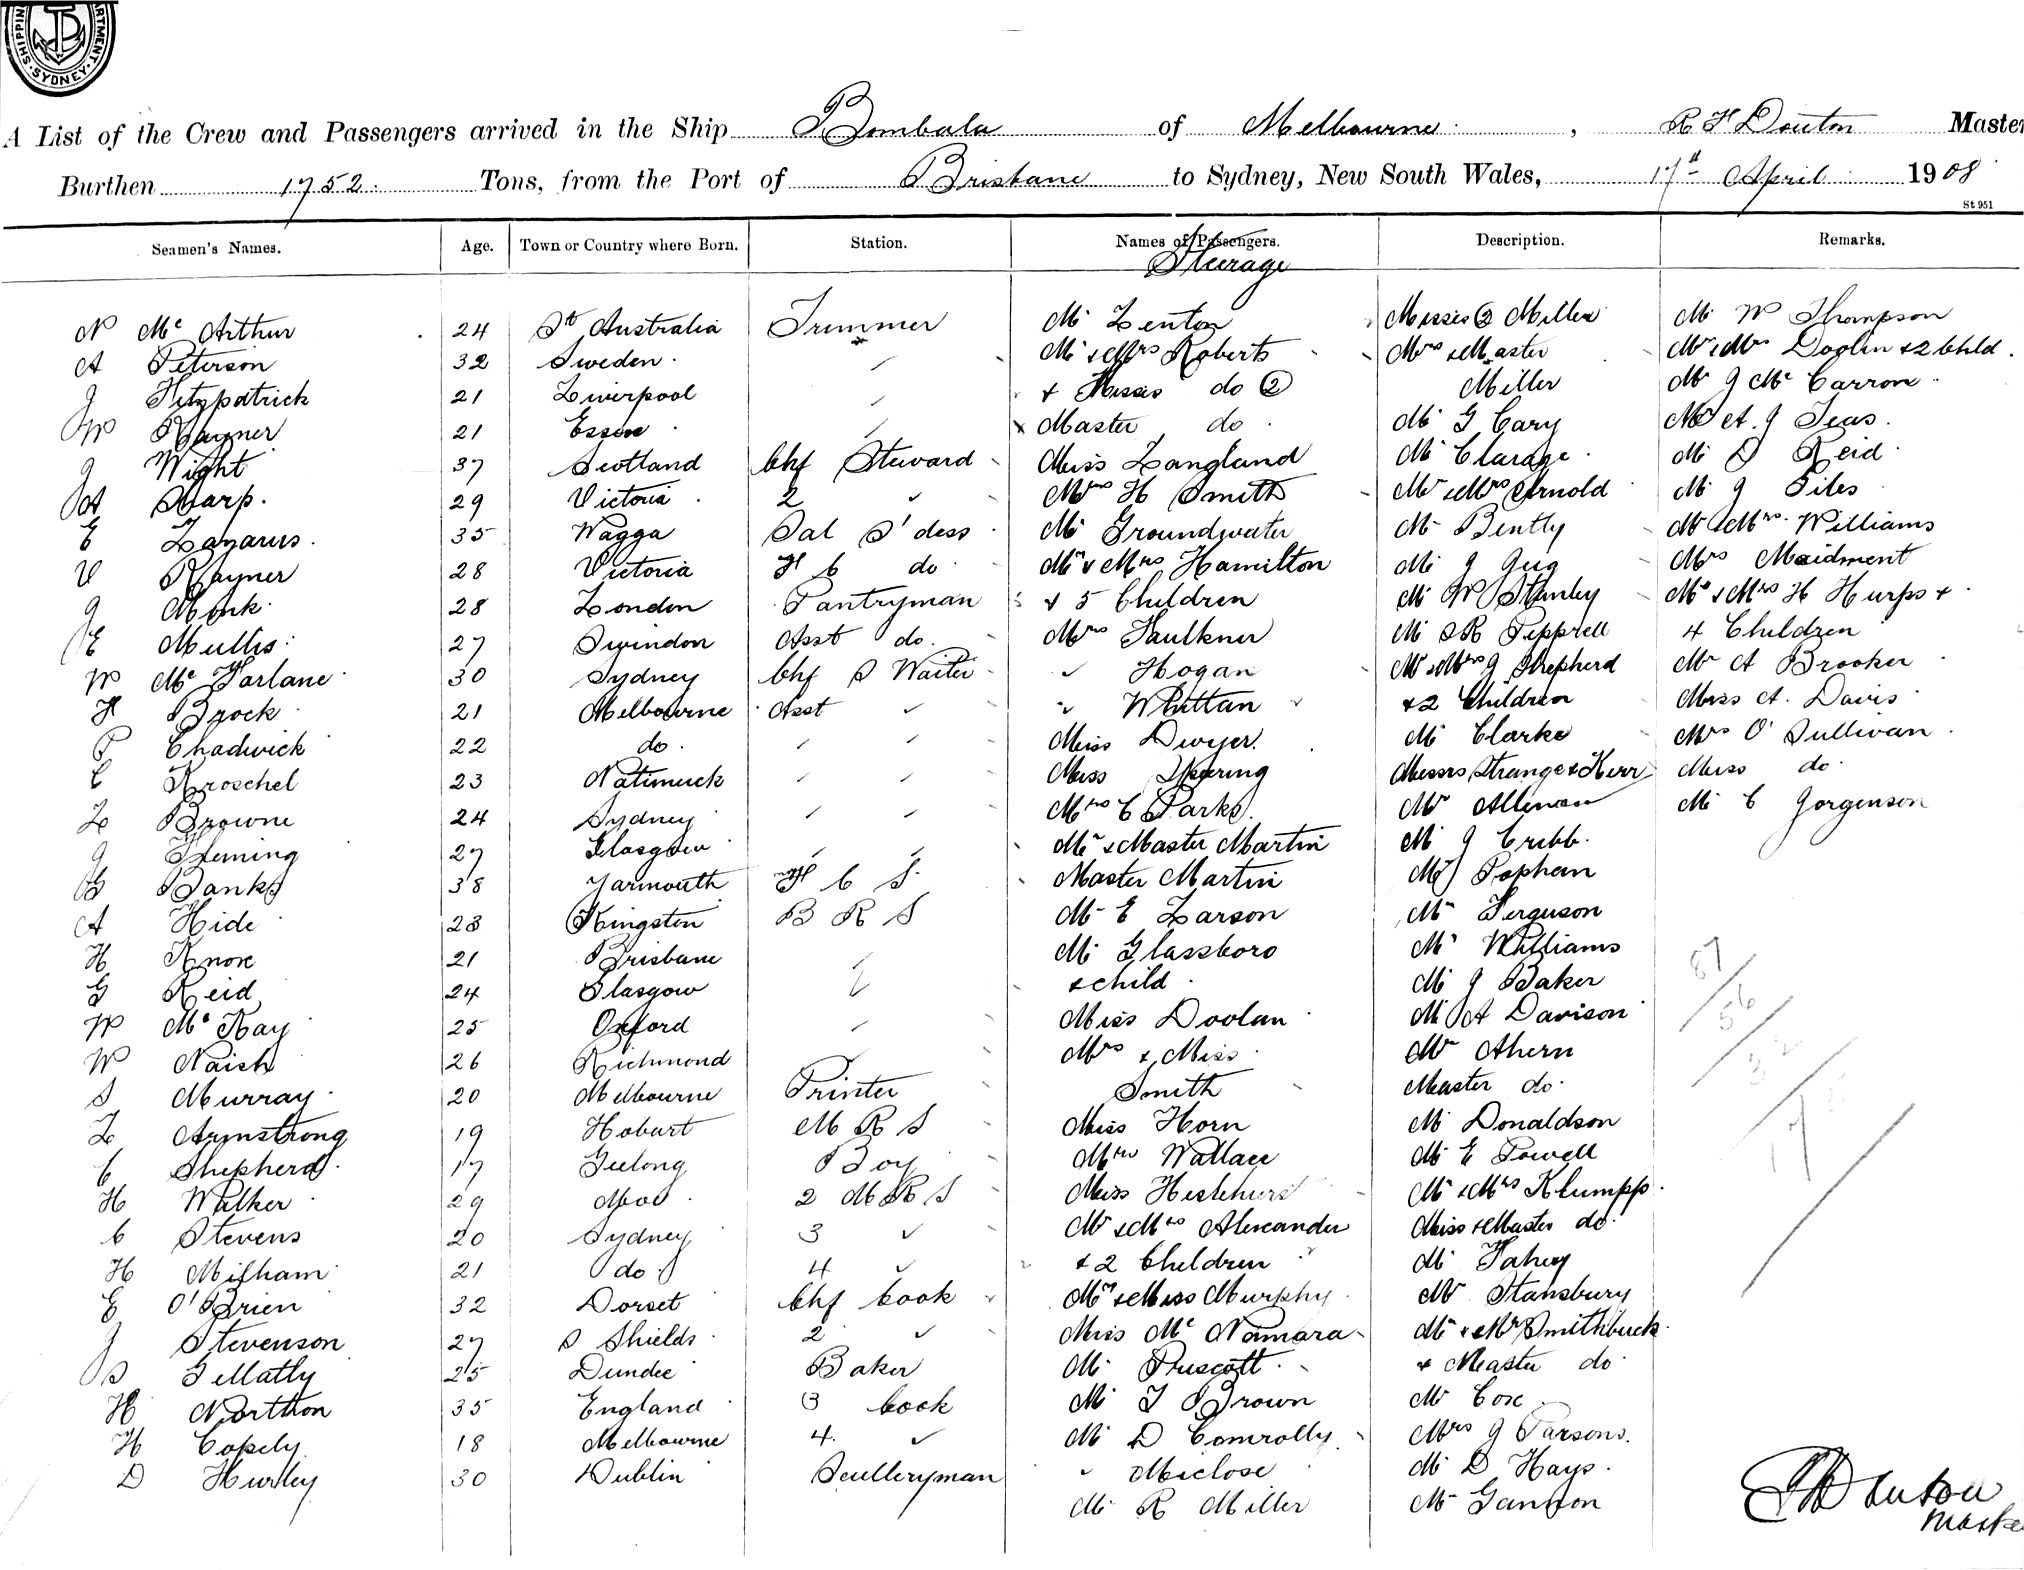 SHIPPING DEPARTMENT · SYDNEY ·
A List of the Crew and Passengers arrived in the Ship Bombala of Melbourne, R F Douton Master
Burthen 1752. Tons, from the Port of Brisbane to Sydney, New South Wales, 17th April 1908
St 951
Seamen's Names. Age. Town or Country where Born. Station. Names of Passengers. Description. Remarks.
Steerage
N McArthur 24 Sth Australia Trimmer Mr Lenton Misses 2 Miller Mr W Thompson
A Peterson 32 Sweden Mr & Mrs Roberts Mrs & Master Mr & Mrs Doolin & 2 Chld.
J Fitzpatrick 21 Liverpool & Misses do 2 Miller Mr J McCarron
W Rayner 21 Essex Master do Mr G Cary Mr A. J Teas.
J Wight 37 Scotland Chf Steward Miss Langland Mr Clarage Mr D Reid
A Sharp. 29 Victoria 2 " Mrs H Smith Mr & Mrs Arnold Mr J Giles
E Lazarus. 35 Wagga Sal S'dess Mr Groundwater Mr Bently Mr & Mrs Williams
V Rayner 28 Victoria F C do Mr & Mrs Hamilton Mr J Gug Mrs Maidment
J Monk 28 London Pantryman & 5 Children Mr W Stanley Mr & Mrs H Hurps &
E Mullis 27 Swindon Asst do. Mrs Faulkner Mr S R Pepprell 4 Children
W McFarlane 30 Sydney Chf S Waiter " Hogan Mr & Mrs J Shepherd Mr A Brooker
H Brock 21 Melbourne Asst " " Whittan & 2 Children Miss A. Davis
P Chadwick 22 do. Miss Dwyer. Mr Clarke Mrs O'Sullivan
C Kroschel 23 Natimuck Miss Skering Messrs Strange & Kerr Miss do
L Browne 24 Sydney Mrs C Parks. Mr Allman Mr C Jorgenson
J Fleming 27 Glasgow Mr & Master Martin Mr J Cribb.
B Banks 38 Yarmouth F C S Master Martin Mr Tophan
A Hide 23 Kingston B R S Mr E Larson Mr Ferguson
H Knox 21 Brisbane Mr Glassboro Mr Williams
G Reid 24 Glasgow & child Mr J Baker
W McKay 25 Oxford Miss Doolan Mr A Davison
W Naish 26 Richmond Mrs & Miss Mr Ahern
S Murray 20 Melbourne Printer Smith Master do
L Armstrong 19 Hobart M R S Miss Horn Mr Donaldson
C Shepherd. 17 Geelong Boy Mrs Wallace Mr E Powell
H Walker 29 Moe 2 M R S Miss Heshhurst Mr & Mrs Klumpp.
C Stevens 20 Sydney 3 " Mr & Mrs Alexander Miss & Master do
H Milham 21 do 4 " & 2 Children Mr Fahey
E O'Brien 32 Dorset Chf Cook Mrs & Miss Murphy Mr Stansbury
J Stevenson 27 S Shields 2 " Miss McNamara Mr & Mrs Smithbuck
S Gellatly 25 Dundee Baker Mr Prescott & Master do
H Northon 35 England 3 Cook Mr T Brown Mr Cox
H Copely 18 Melbourne 4. " Mr D Comrolly Mrs J Parsons.
D Hurley 30 Dublin Sculleryman " Miclose Mr D Hays.
Mr R Miller Mr Gannon
87
56
17
R F Douton
Master